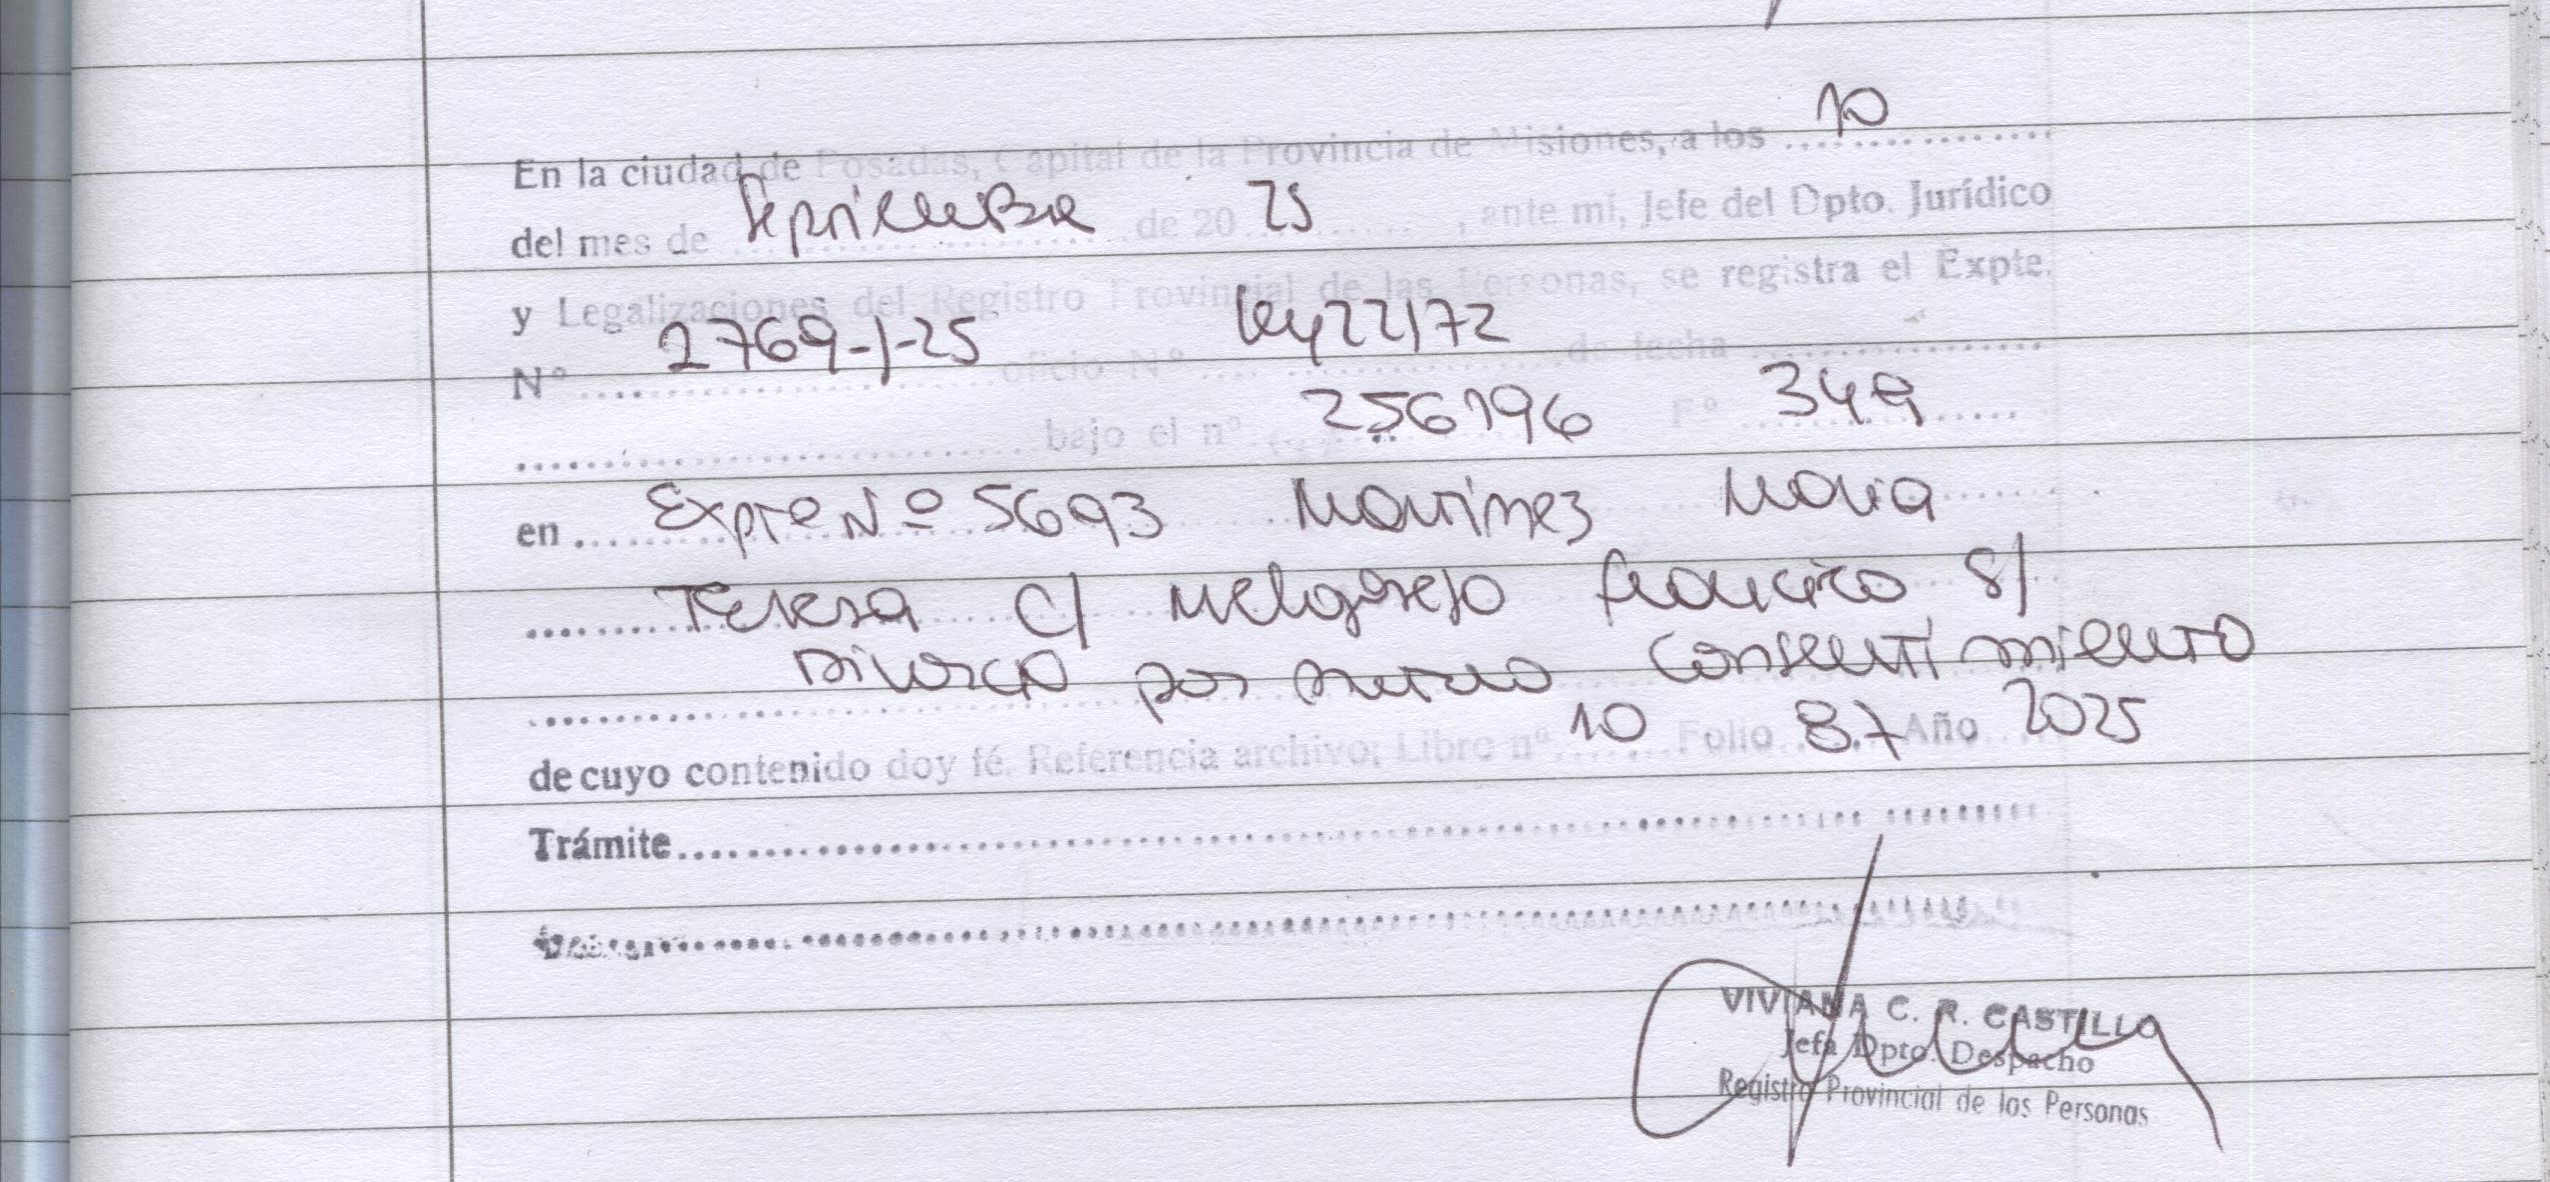 En la ciudad de Posadas, Capital de la Provincia de Misiones, a los 10
del mes de Septiembre de 20 25, ante mí, Jefe del Dpto. Jurídico
y Legalizaciones del Registro Provincial de las Personas, se registra el Expte.
Nº 2769-J-25 oficio Nº Ley 22172 de fecha
bajo el nº 256196 Fº 349
en Expte Nº 5693 Martinez Maria
Teresa c/ Melgarejo Francisco s/
Divorcio por mutuo consentimiento
de cuyo contenido doy fé. Referencia archivo; Libro nº 10 Folio 87 Año 2025
Trámite
VIVIANA C. R. CASTILLO
Jefa Dpto. Despacho
Registro Provincial de las Personas